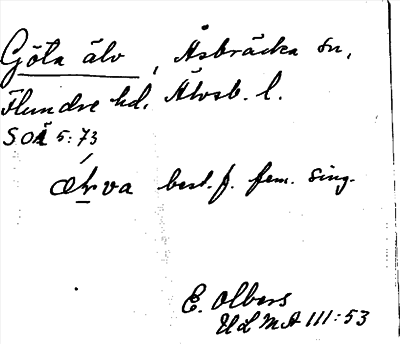 Göta älv, Åsbräcka sn,
Flundre hd, Älvsb. l.
SOÄ 5:73
best. f. fem. sing.
E. Olbers
ULMA 111:53